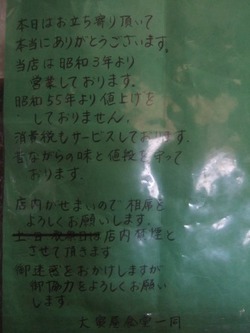 本日はお立ち寄り頂いて
本当にありがとうございます。
当店は昭和3年より
営業しております。
昭和55年より値上げを
しておりません。
消費税もサービスしております。
昔ながらの味と値段を守って
おります。
店内がせまいので相席と
よろしくお願いします。
店内禁煙と
させて頂きます
御迷惑をおかけしますが
御協力をよろしくお願い
します。
一同